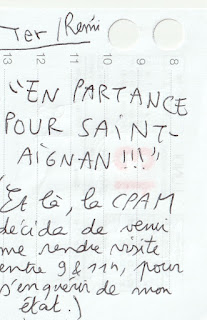 Ter/Remi
13 12 11 10 9 8
"EN PARTANCE
POUR SAINT-
AIGNAN!!!"
(Et là, la CPAM
décida de venir
me rendre visite
entre 9 & 11h, pour
s'enquérir de mon
état.)